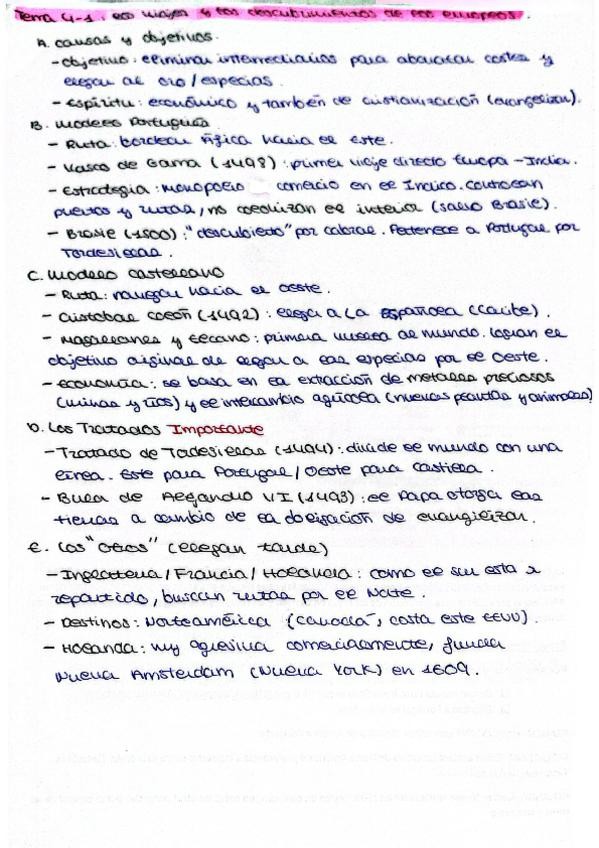 Tema 4-1: los viajes y los descubrimientos de los europeos.
A. causas y objetivos.
- objetivo: eliminar intermediarios para abaratar costes y
llegar al oro/especias.
- Espíritu: económico y también de cristianización (evangelizar).
B. Modelo Portugués
- Ruta: bordear África hacia el este.
- Vasco de Gama (1498): primer viaje directo Europa-India.
- Estrategia: monopolio comercio en el Índico. controlan
puertos y rutas, no colonizan el interior (salvo Brasil).
- Brasil (1500): "descubierto" por cabral. Pertenece a Portugal por
Tordesillas.
C. Modelo castellano
- Ruta: navegar hacia el oeste.
- Cristobal colón (1492): llega a La Española (Caribe).
- Magallanes y Elcano: primera vuelta al mundo. logran el
objetivo original de llegar a las especias por el Oeste.
- economía: se basa en la extracción de metales preciosos
(minas y ríos) y el intercambio agrícola (nuevas plantas y animales)
D. Los Tratados Importante
- Tratado de Tordesillas (1494): divide el mundo con una
línea. Este para Portugal/Oeste para Castilla.
- Bula de Alejandro VI (1493): el Papa otorga las
tierras a cambio de la obligación de evangelizar.
E. Los "otros" (llegan tarde)
- Inglaterra/Francia/Holanda: como el sur esta x
repartido, buscan rutas por el Norte.
- Destinos: Norteamérica (Canadá, costa este EEUU).
- Holanda: muy agresiva comercialmente, funda
Nueva Amsterdam (Nueva York) en 1609.